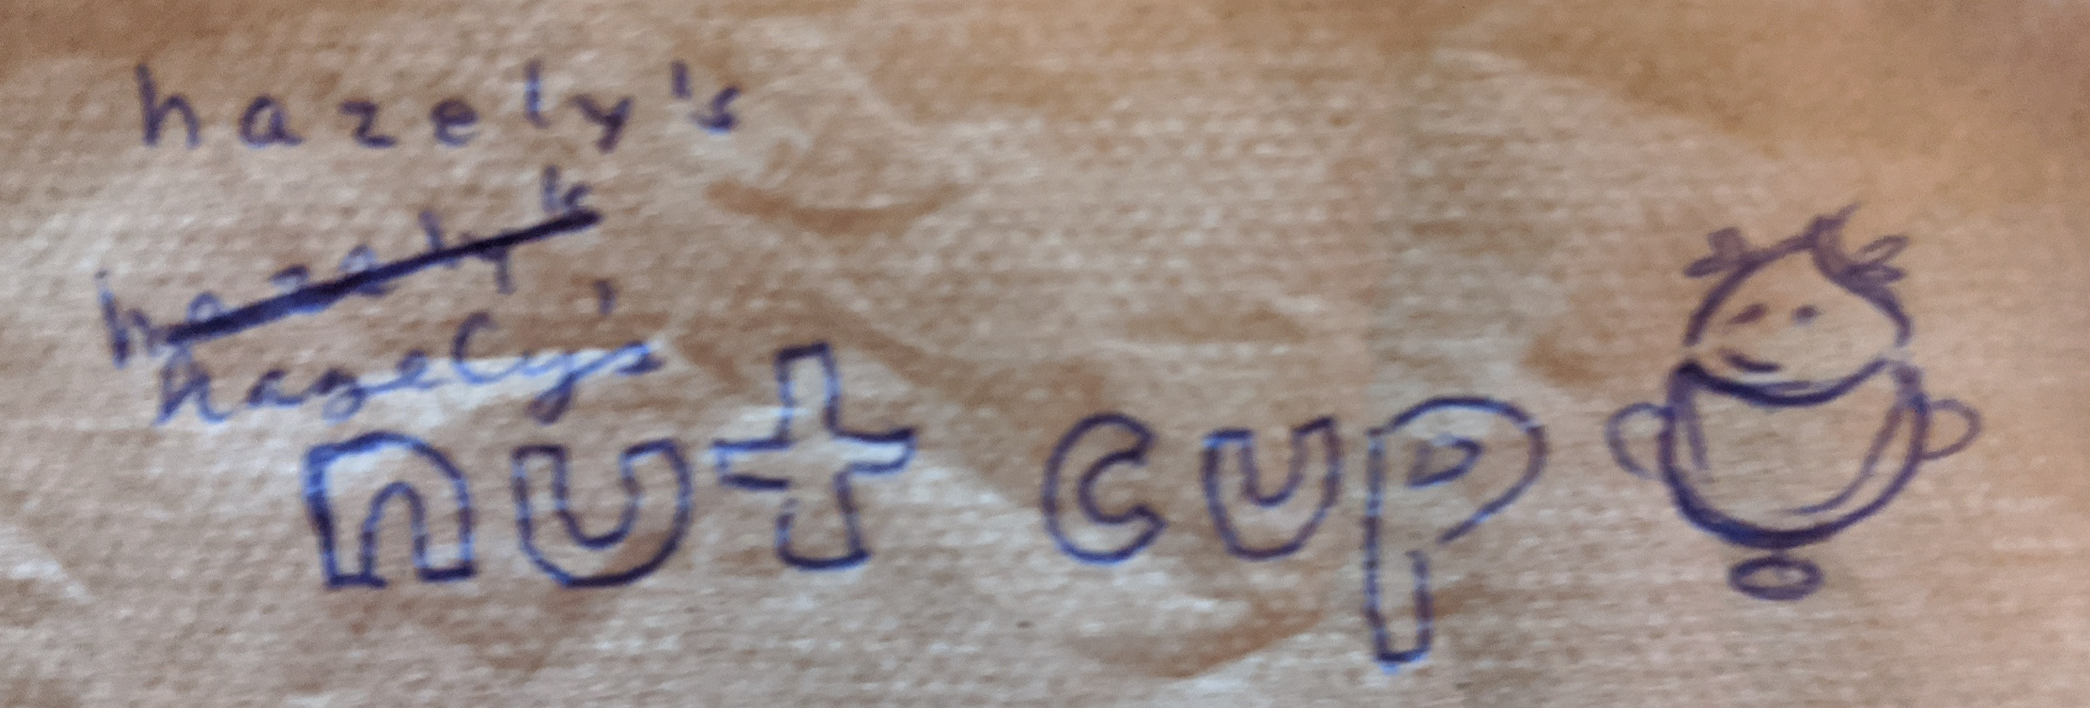 hazely's
hazely's
hazely's
nut cup